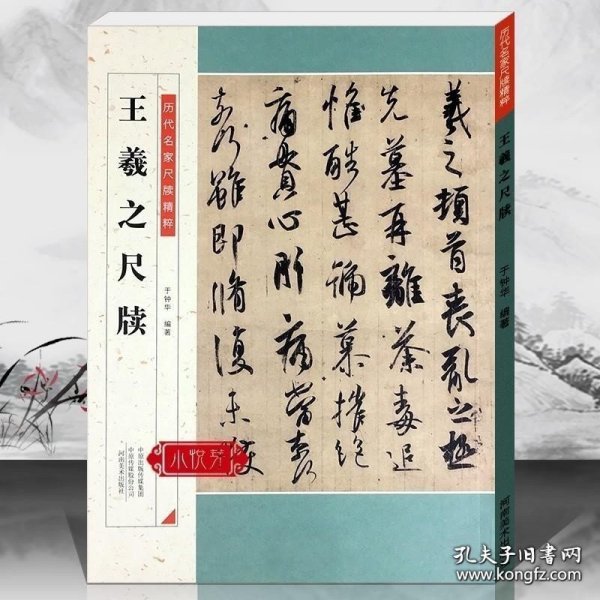 王羲之尺牍
历代名家尺牍精粹
于钟华 编著
中原出版传媒集团
中原传媒股份公司
河南美术出版社
羲之顿首丧乱之极
先墓再离荼毒追
惟酷甚号慕摧绝
痛贯心肝痛当奈
奈何虽即修复未获
小悦芽
历代名家尺牍精粹
王羲之尺牍
于钟华 编著
河南美术出
孔夫子旧书网
www.kongfz.com